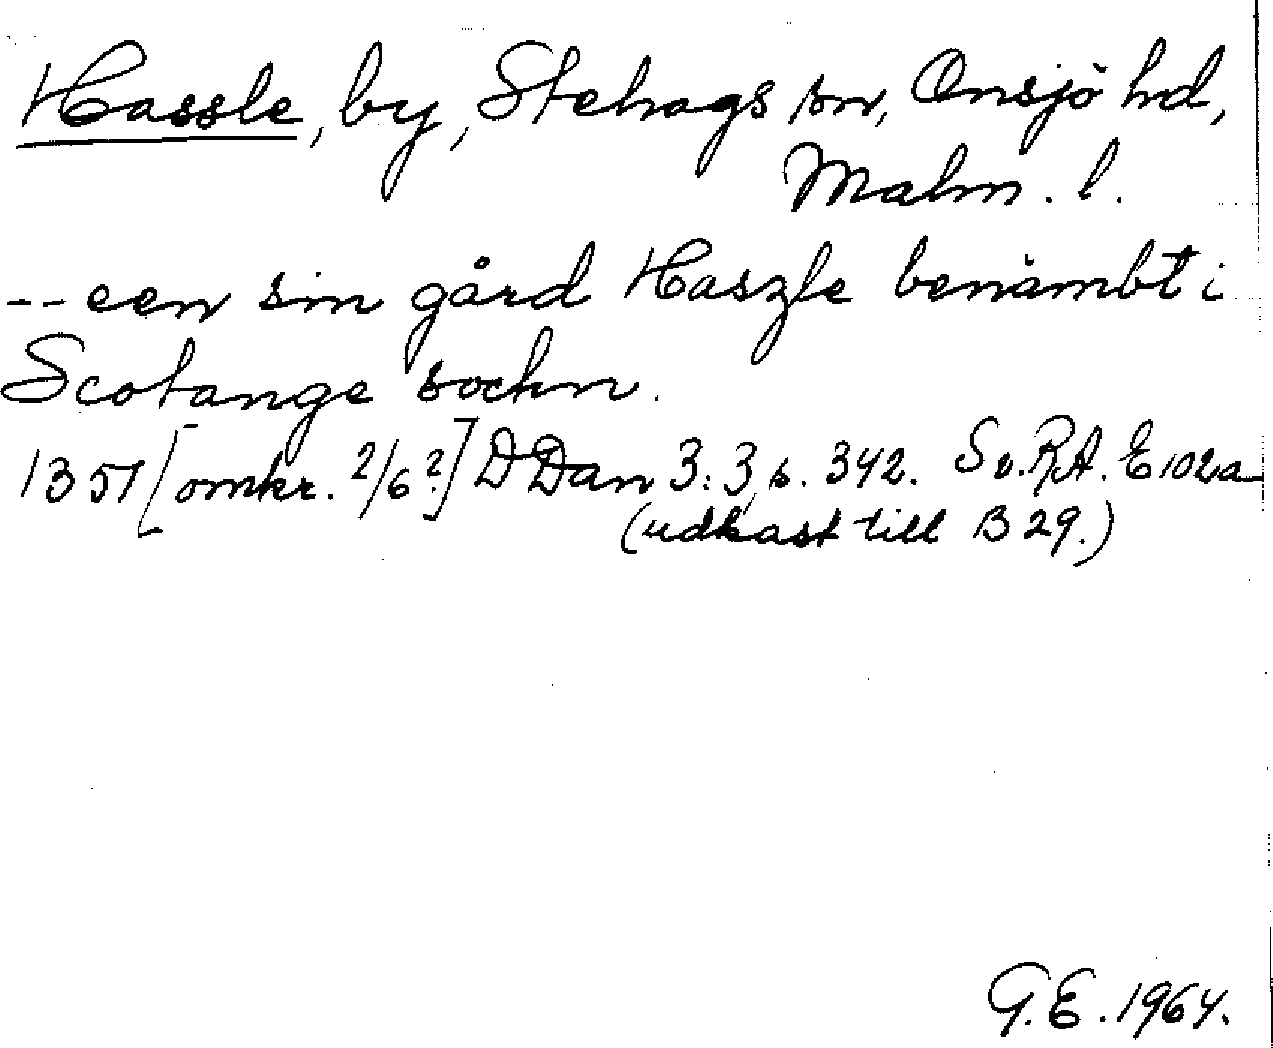 Hassle, by, Stehags sn, Onsjö hd,
Malm. l.
-- een sin gård Haszle benämbt i
Scotange sochn.
1357 [omkr. 2/6?] D Dan 3:3, s. 342. Sv. RA. E 102a
(udkast till B 29.)
G.E. 1964.